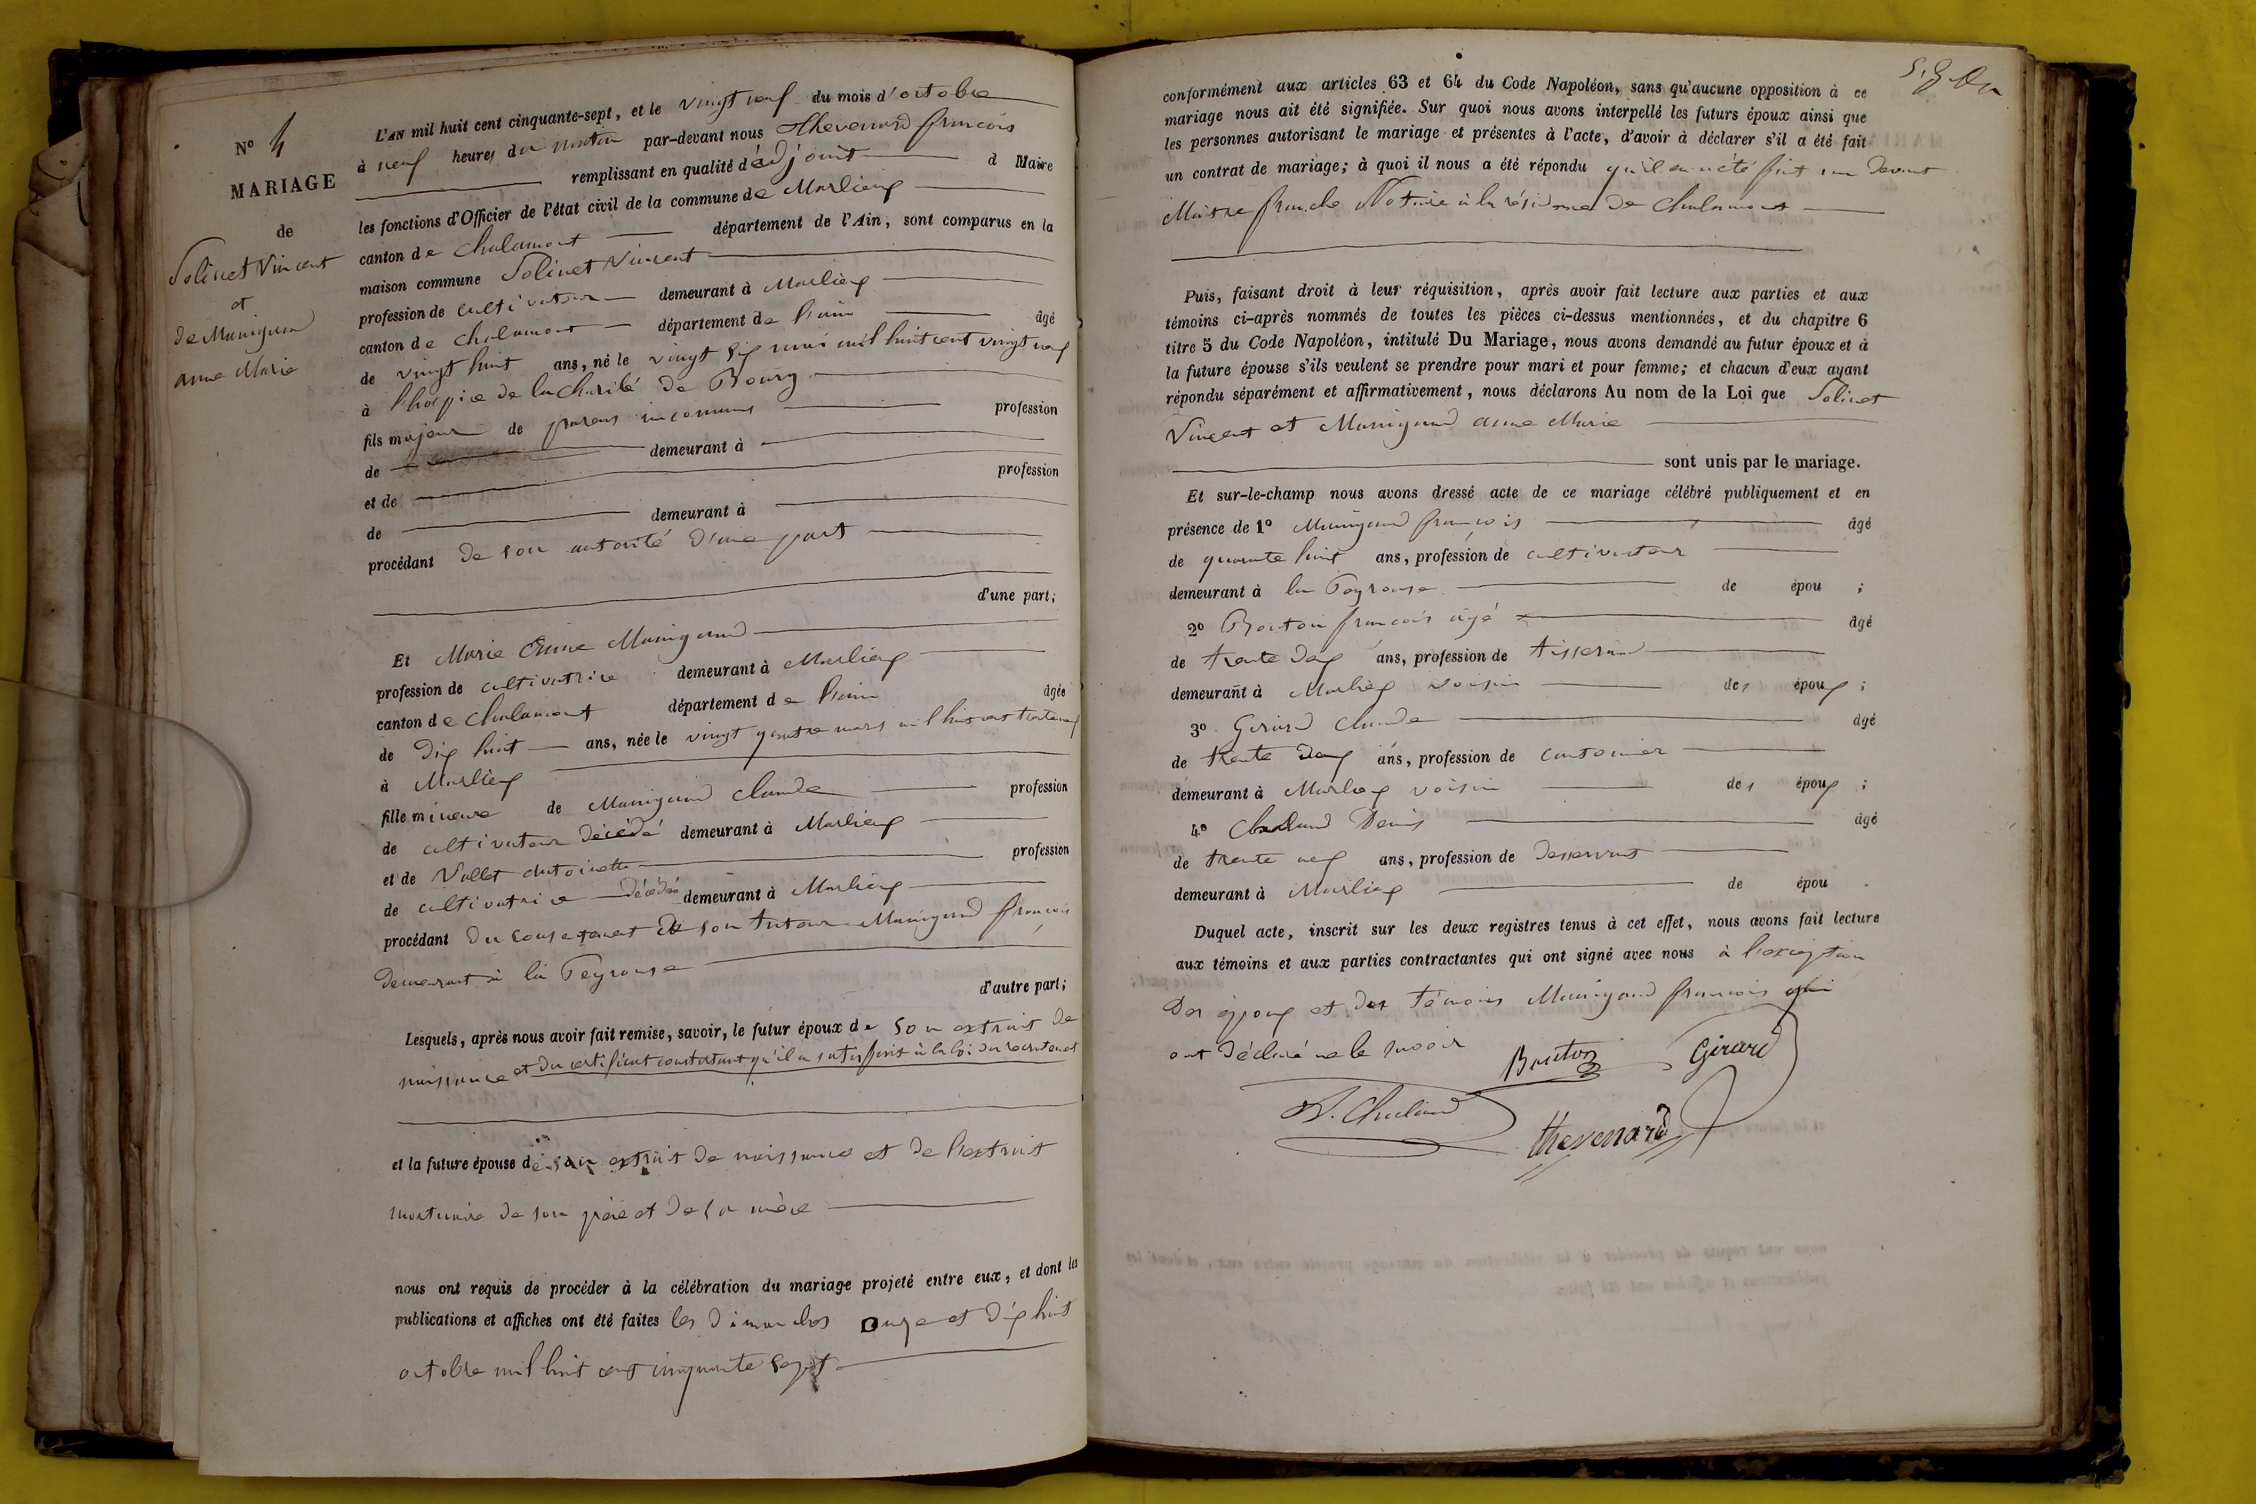 N° 4
MARIAGE
de
Solinet Vincent
et
de Manigand
anne Marie
L'AN mil huit cent cinquante-sept, et le vingt neuf du mois d'octobre
à neuf heures du matin par-devant nous Thevenard françois
remplissant en qualité d'adjoint d Maire
les fonctions d'Officier de l'état civil de la commune de Marlieux
canton de chalamont département de l'Ain, sont comparus en la
maison commune Solinet Vincent
profession de cultivateur demeurant à Marlieux
canton de chalamont département de l'ain âgé
de vingt huit ans, né le vingt six mai mil huit cent vingt neuf
à l'hospice de la charité de Bourg
fils majeur de parens inconnus profession
de demeurant à
et de profession
de demeurant à
procédant de son autorité d'une part
d'une part;
Et Marie Anne Manigand
profession de cultivatrice demeurant à Marlieux
canton de chalamont département de l'ain âgée
de dix huit ans, née le vingt quatre mars mil huit cent trente neuf
à Marlieux
fille mineure de Manigand claude profession
de cultivateur décédé demeurant à Marlieux
et de Vallet Antoinette profession
de cultivatrice décédée demeurant à Marlieux
procédant du consentement de son tuteur Manigand françois
demeurant à la Peyrouse
d'autre part;
Lesquels, après nous avoir fait remise, savoir, le futur époux de son extrait de
naissance et du certificat constatant qu'il a satisfait à la loi du recrutement
et la future épouse de son extrait de naissance et de l'extrait
mortuaire de son père et de sa mère
nous ont requis de procéder à la célébration du mariage projeté entre eux, et dont les
publications et affiches ont été faites les dimanches onze et dix huit
octobre mil huit cent cinquante sept
conformément aux articles 63 et 64 du Code Napoléon, sans qu'aucune opposition à ce
mariage nous ait été signifiée. Sur quoi nous avons interpellé les futurs époux ainsi que
les personnes autorisant le mariage et présentes à l'acte, d'avoir à déclarer s'il a été fait
un contrat de mariage; à quoi il nous a été répondu qu'il en a été fait un devant
Maitre franche Notaire à la résidence de chalamont
Puis, faisant droit à leur réquisition, après avoir fait lecture aux parties et aux
témoins ci-après nommés de toutes les pièces ci-dessus mentionnées, et du chapitre 6
titre 5 du Code Napoléon, intitulé Du Mariage, nous avons demandé au futur époux et à
la future épouse s'ils veulent se prendre pour mari et pour femme; et chacun d'eux ayant
répondu séparément et affirmativement, nous déclarons Au nom de la Loi que Solinet
Vincent et Manigand anne Marie
sont unis par le mariage.
Et sur-le-champ nous avons dressé acte de ce mariage célébré publiquement et en
présence de 1° Manigand françois âgé
de quarante huit ans, profession de cultivateur
demeurant à la Peyrouse de épou ;
2° Bouton françois âgé âgé
de trente deux ans, profession de tisserand
demeurant à Marlieux voisin des époux ;
3° Girard claude âgé
de trente deux ans, profession de cantonnier
demeurant à Marlieux voisin des époux ;
4° Chaland Denis âgé
de trente neuf ans, profession de desservant
demeurant à Marlieux de épou .
Duquel acte, inscrit sur les deux registres tenus à cet effet, nous avons fait lecture
aux témoins et aux parties contractantes qui ont signé avec nous à l'exception
des époux et des témoins Manigand françois qui
ont déclaré ne le savoir
Bouton Girard
D. Chaland
thevenard